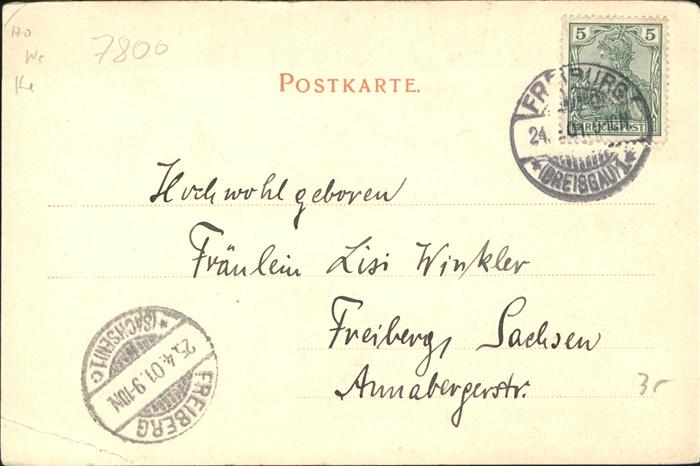 7800
We
Ke
POSTKARTE.
5 5
REICHSPOST
FREIBURG
24.
(BREISGAU)
Hochwohlgeboren
Fräulein Lisi Winkler
Freiberg, Sachsen
Annabergerstr.
(SACHSEN) 1 c
25.4.01. 9-10N.
FREIBERG